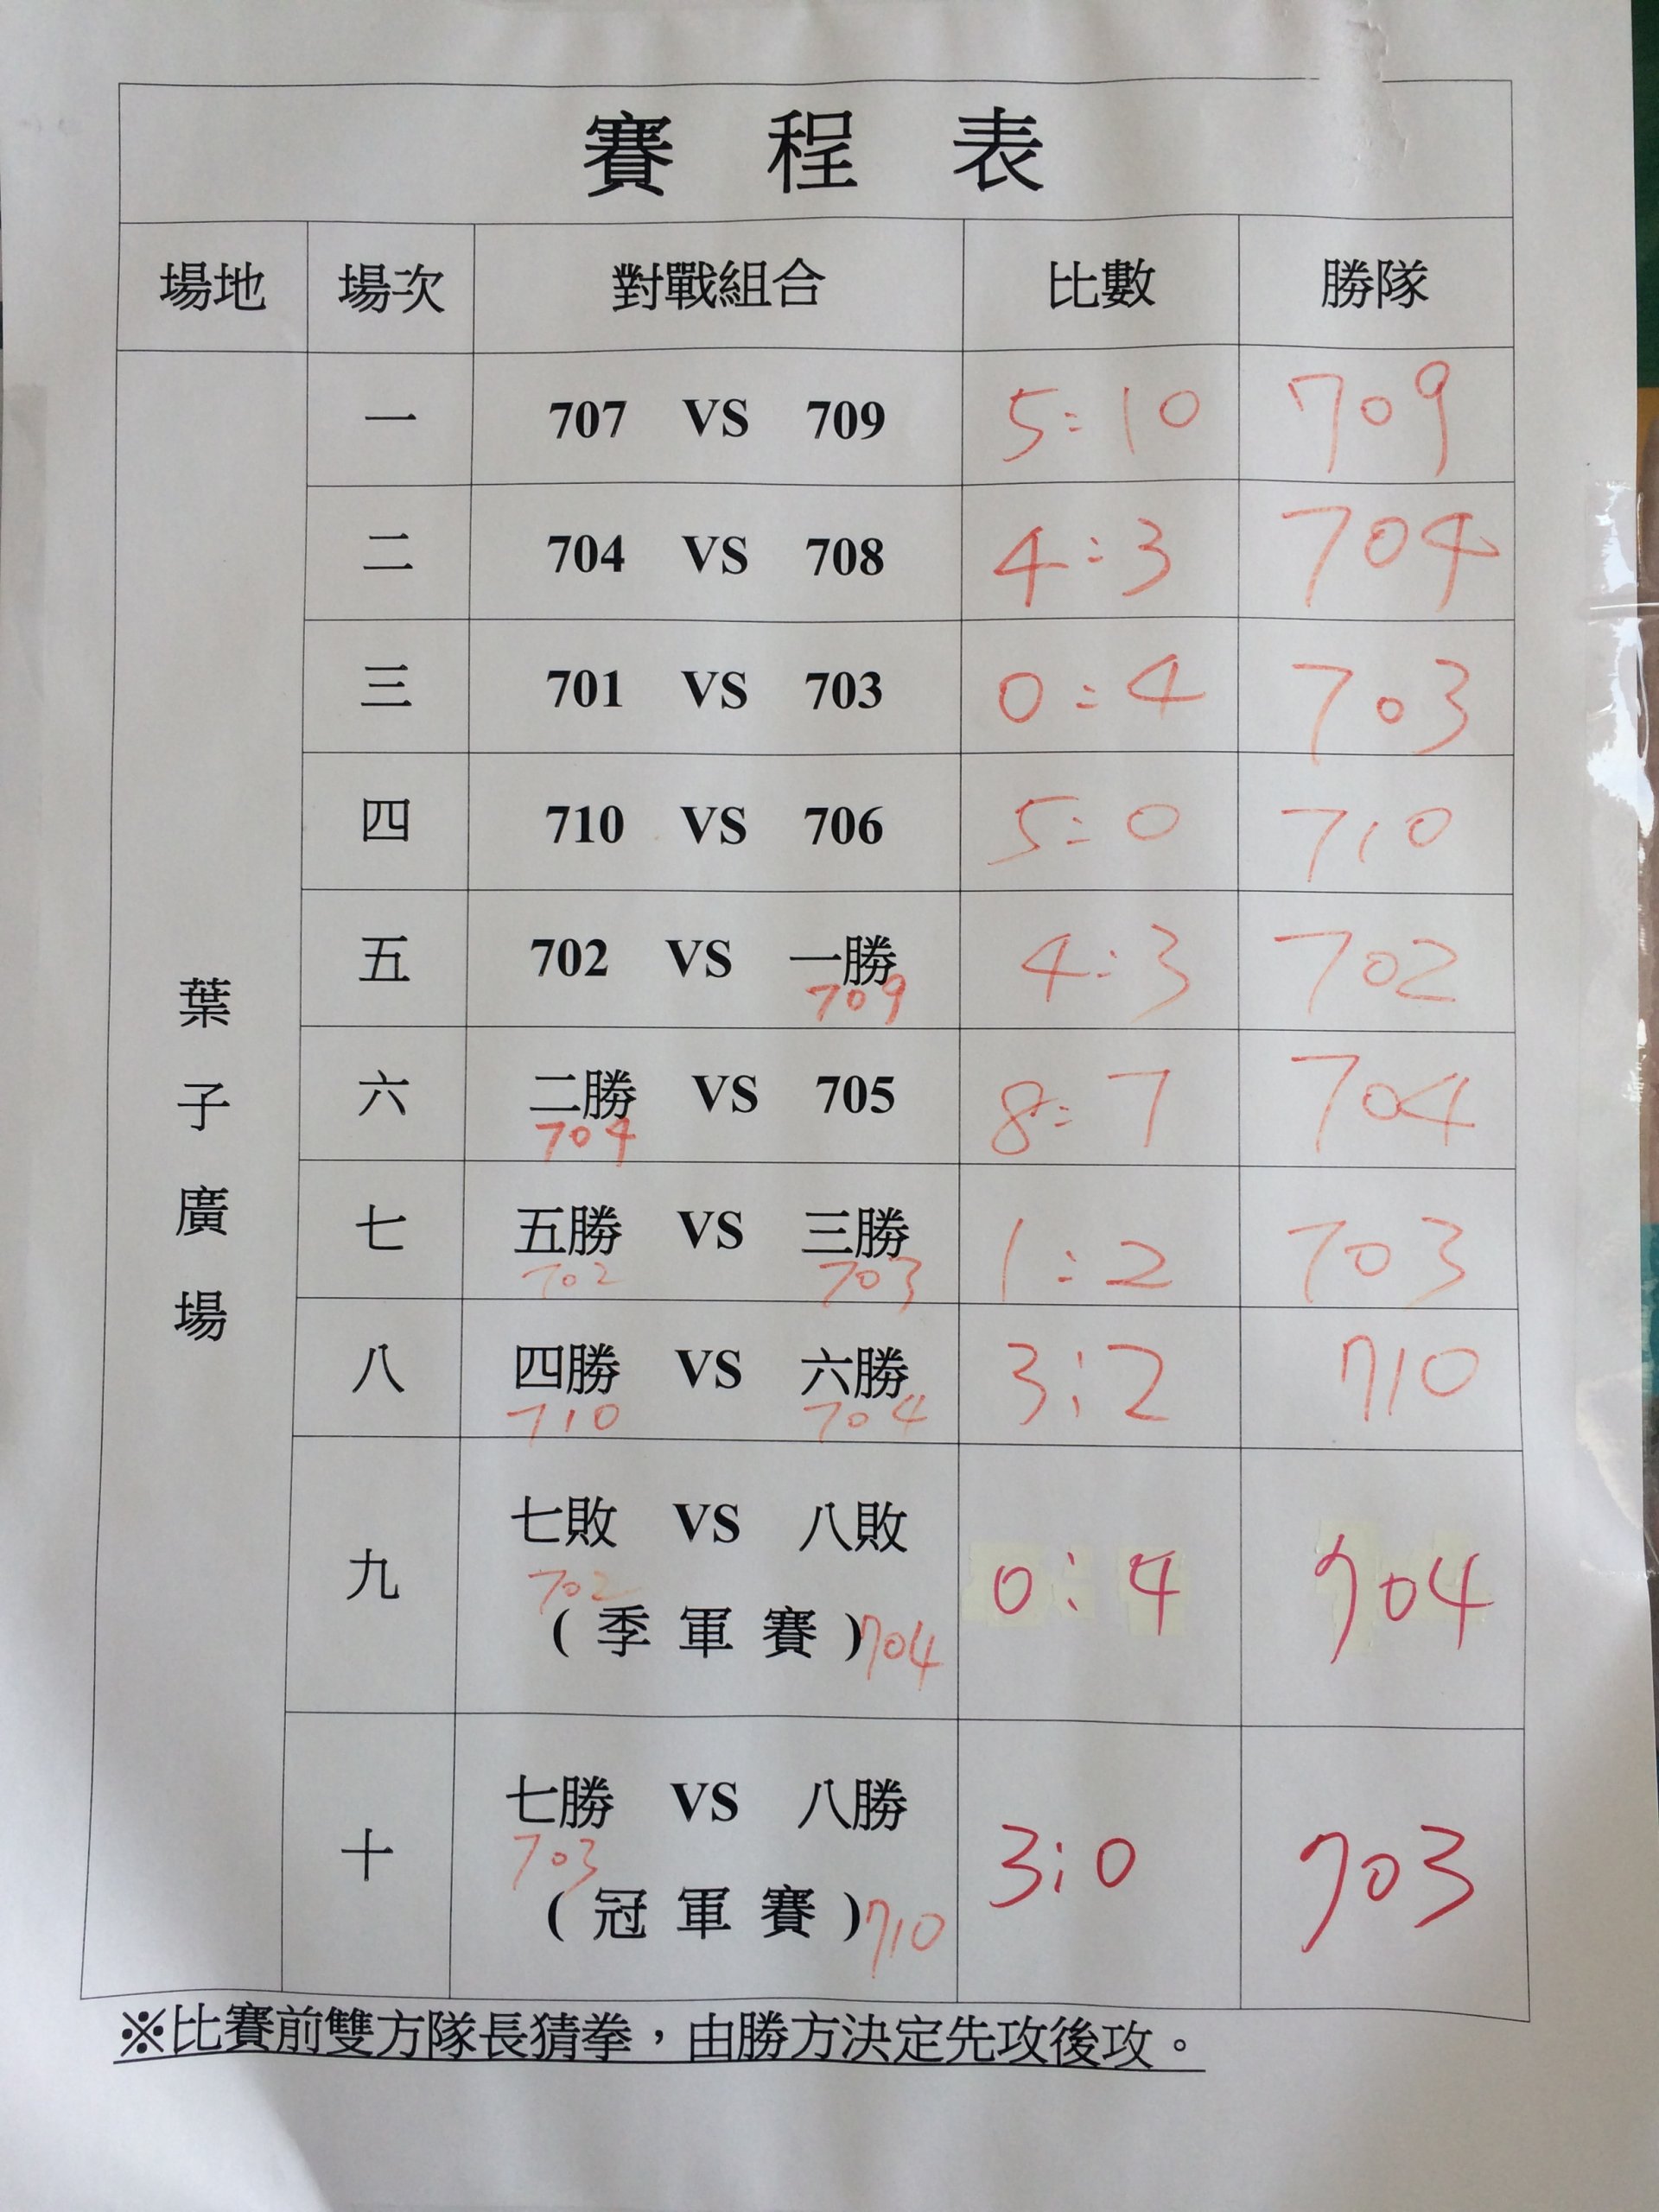 賽程表
場地 場次 對戰組合 比數 勝隊
葉子廣場
一 707 VS 709 5:10 709
二 704 VS 708 4:3 704
三 701 VS 703 0:4 703
四 710 VS 706 5:0 710
五 702 VS 一勝 4:3 702
709
六 二勝 VS 705 8:7 704
704
七 五勝 VS 三勝 1:2 703
702 703
八 四勝 VS 六勝 3:2 710
710 704
九 七敗 VS 八敗 0:4 704
702
(季軍賽) 704
十 七勝 VS 八勝 3:0 703
703
(冠軍賽) 710
※比賽前雙方隊長猜拳，由勝方決定先攻後攻。